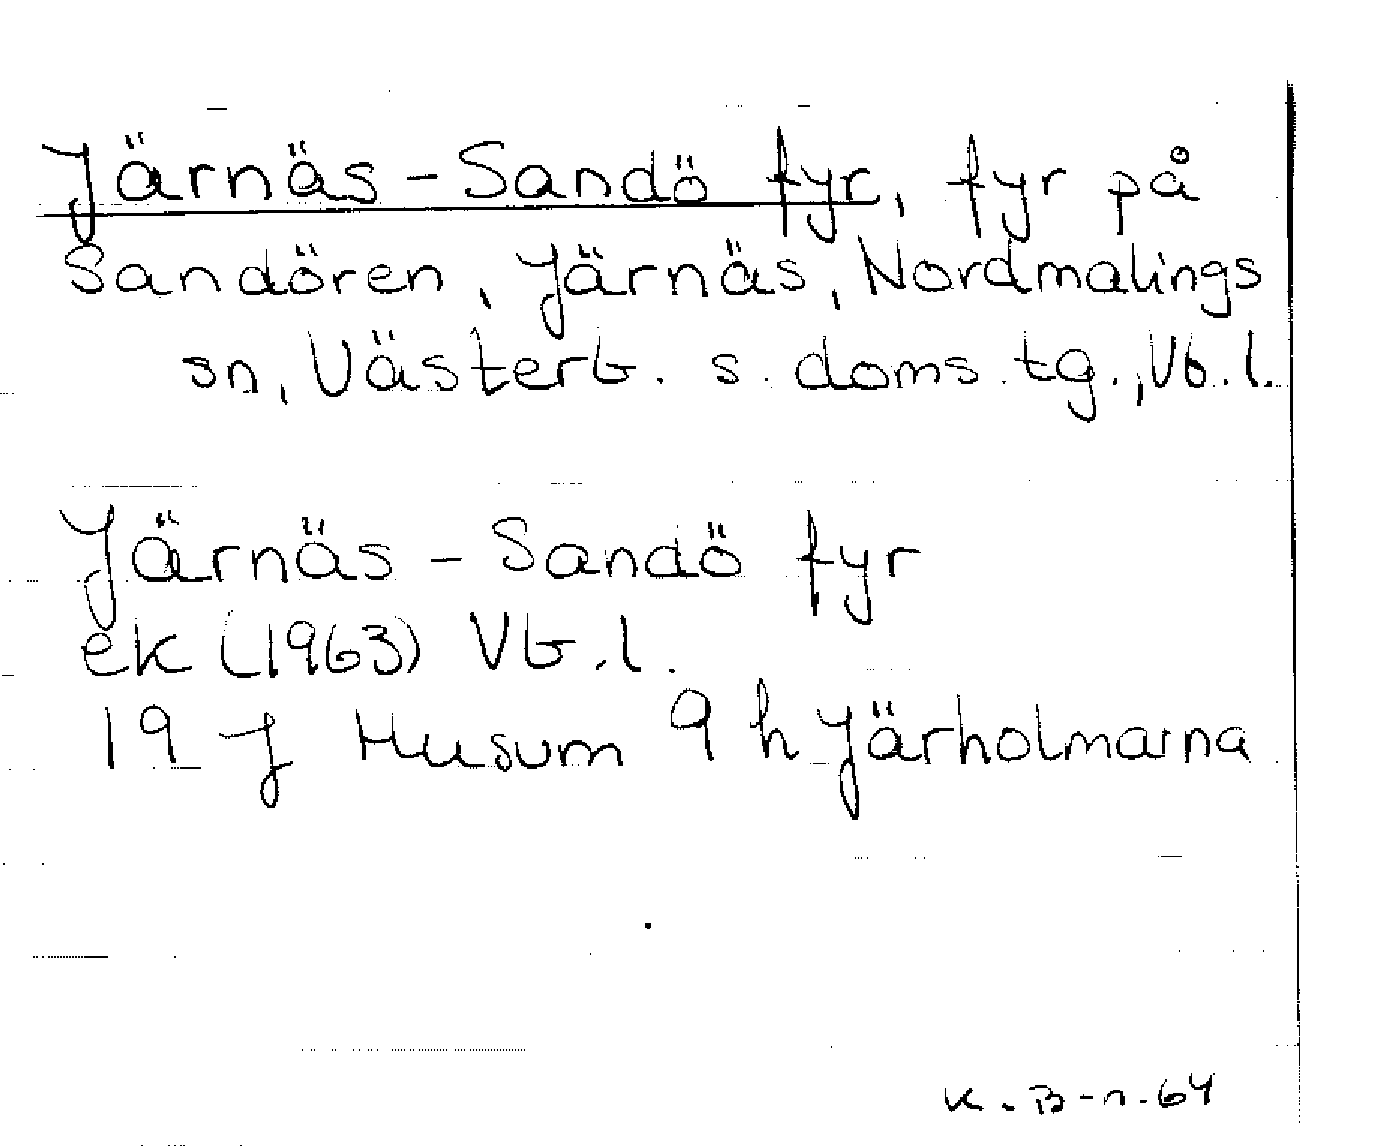 Järnäs-Sandö fyr, fyr på
Sandören, Järnäs, Nordmalings
sn, Västerb. s. doms. tg., Vb. l.
Järnäs - Sandö fyr
ek (1963) Vb. l.
19 J Husum 9 h Järholmarna
K. B-n. 64